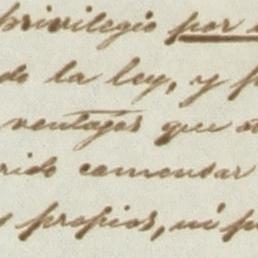 privilegio por
do la ley, y
ventajas que
rido comensar
propios, ni